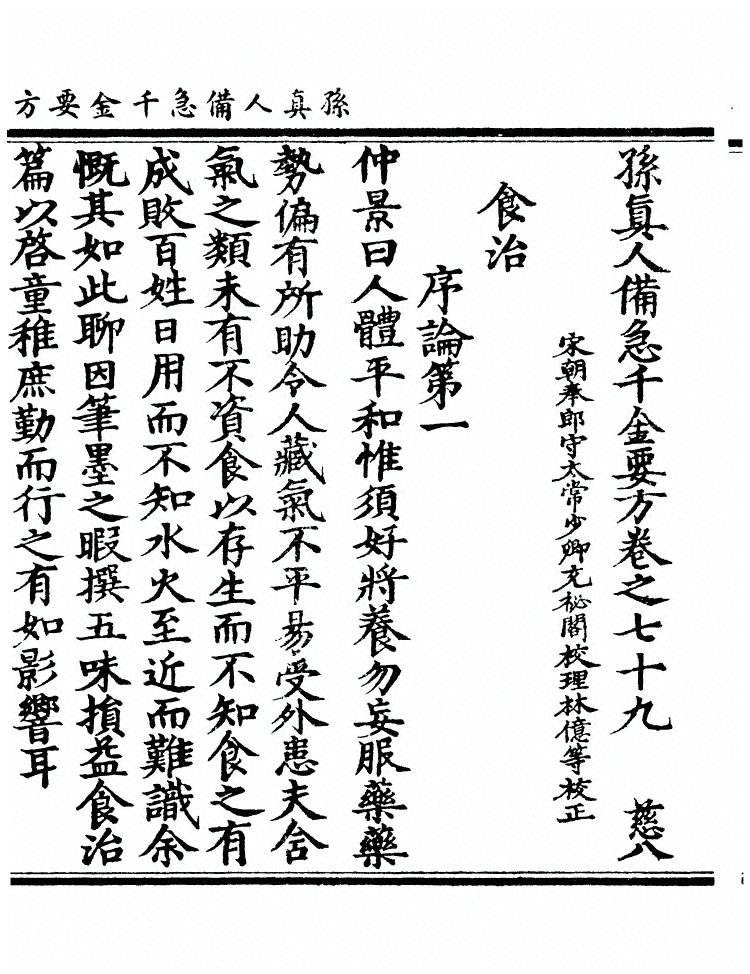 孫真人備急千金要方
孫真人備急千金要方卷之七十九　慈八
宋朝奉郎守太常少卿充秘閣校理林億等校正
食治
序論第一
仲景曰人體平和惟須好將養勿妄服藥藥
勢偏有所助令人藏氣不平易受外患夫含
氣之類未有不資食以存生而不知食之有
成敗百姓日用而不知水火至近而難識余
慨其如此聊因筆墨之暇撰五味損益食治
篇以啓童稚庶勤而行之有如影響耳